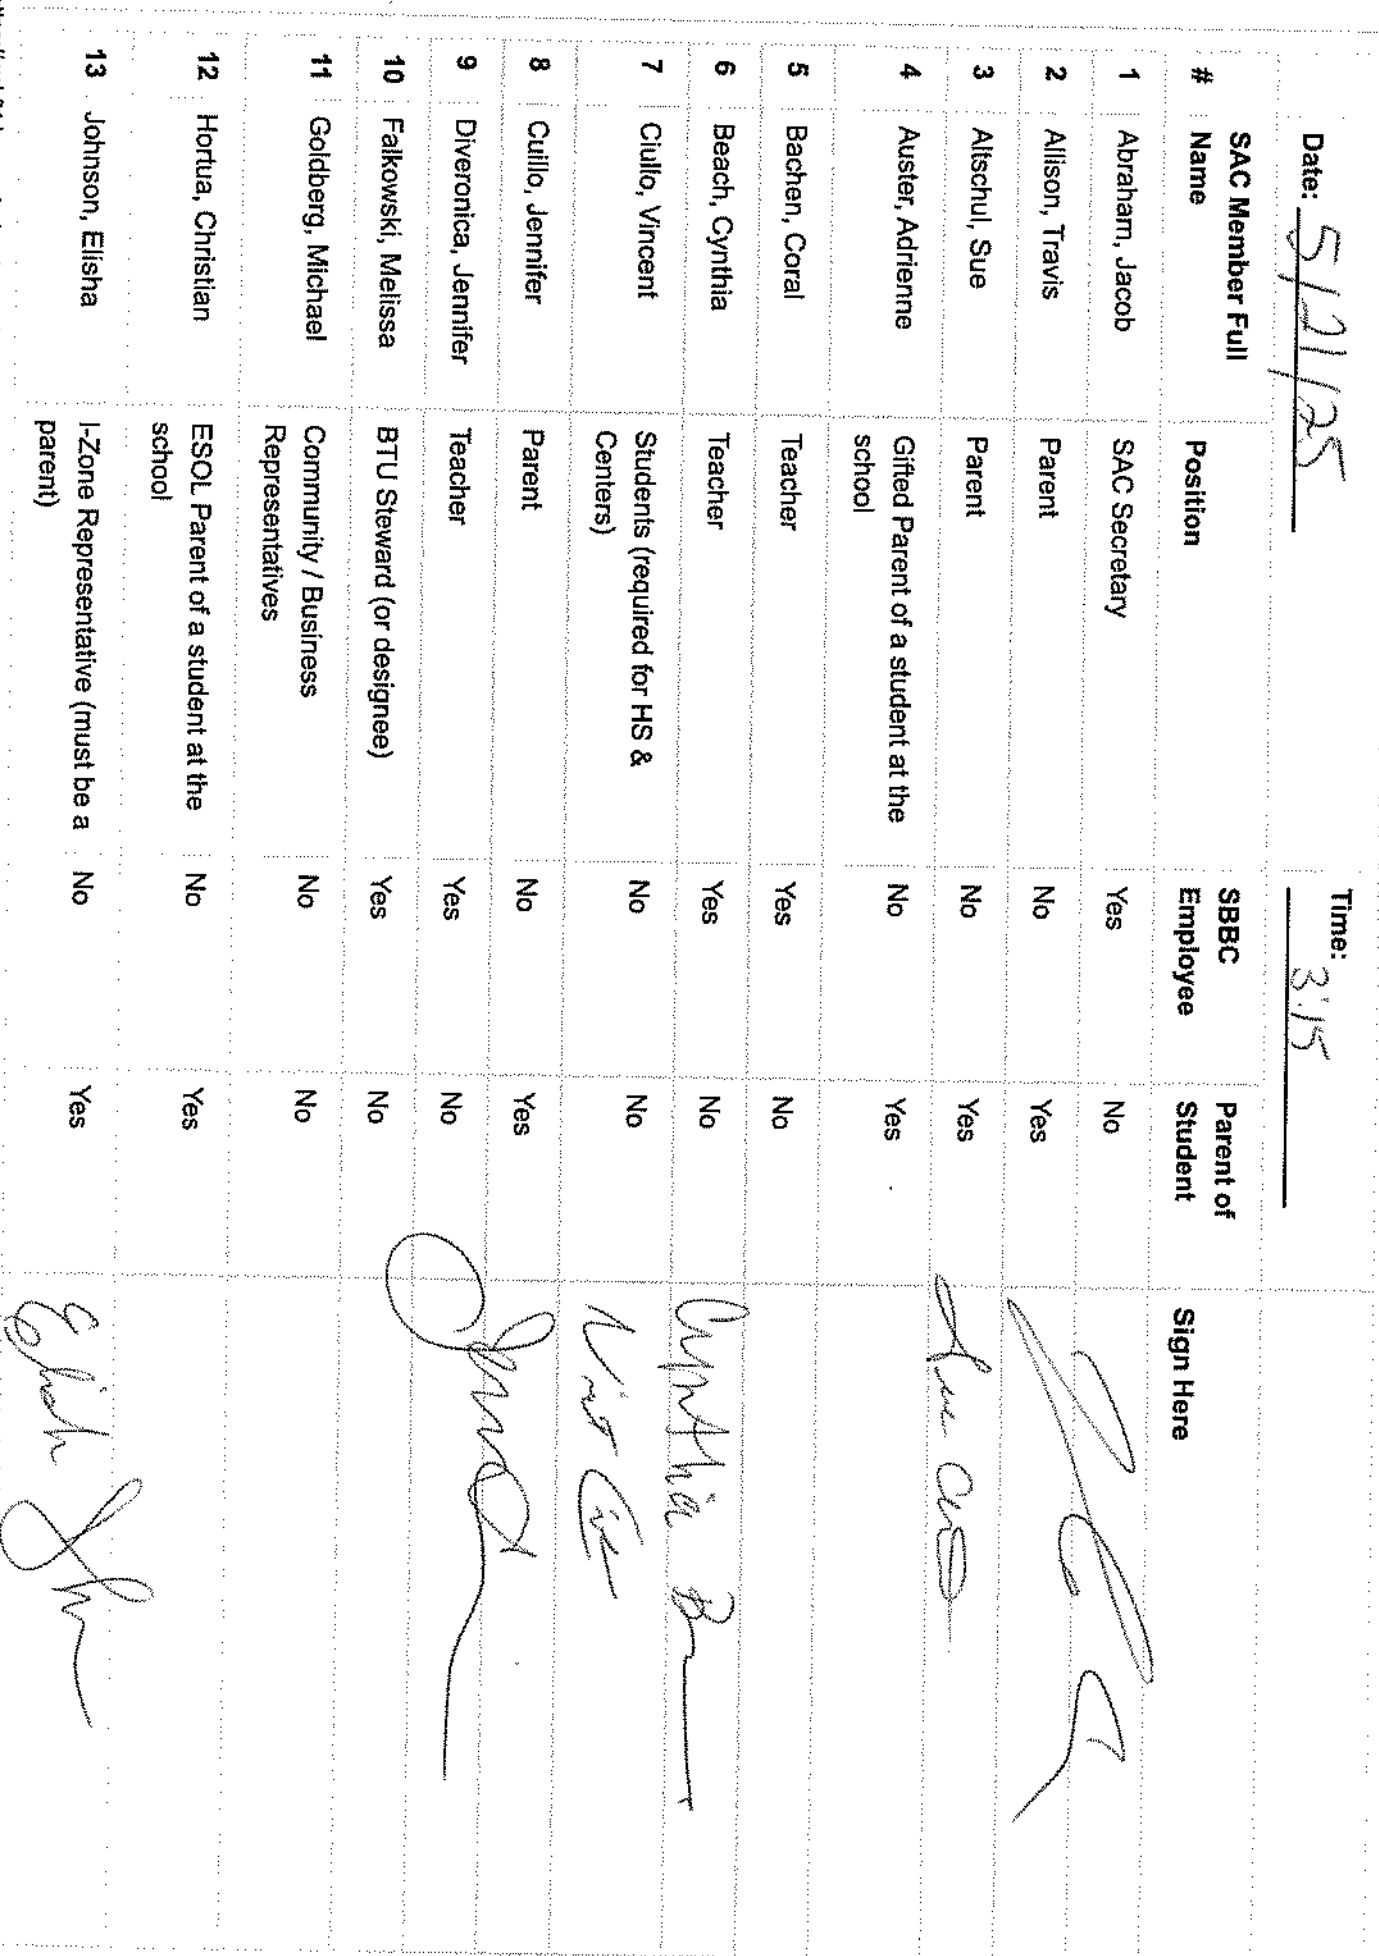 Date: 5/21/25 Time: 3:15
# SAC Member Full Name Position SBBC Employee Parent of Student Sign Here
1 Abraham, Jacob SAC Secretary Yes No
2 Allison, Travis Parent No Yes
3 Altschul, Sue Parent No Yes Sue
4 Auster, Adrienne Gifted Parent of a student at the school No Yes
5 Bachen, Coral Teacher Yes No
6 Beach, Cynthia Teacher Yes No Cynthia B
7 Ciullo, Vincent Students (required for HS & Centers) No No
8 Cuillo, Jennifer Parent No Yes
9 Diveronica, Jennifer Teacher Yes No
10 Falkowski, Melissa BTU Steward (or designee) Yes No
11 Goldberg, Michael Community / Business Representatives No No
12 Hortua, Christian ESOL Parent of a student at the school No Yes
13 Johnson, Elisha I-Zone Representative (must be a parent) No Yes